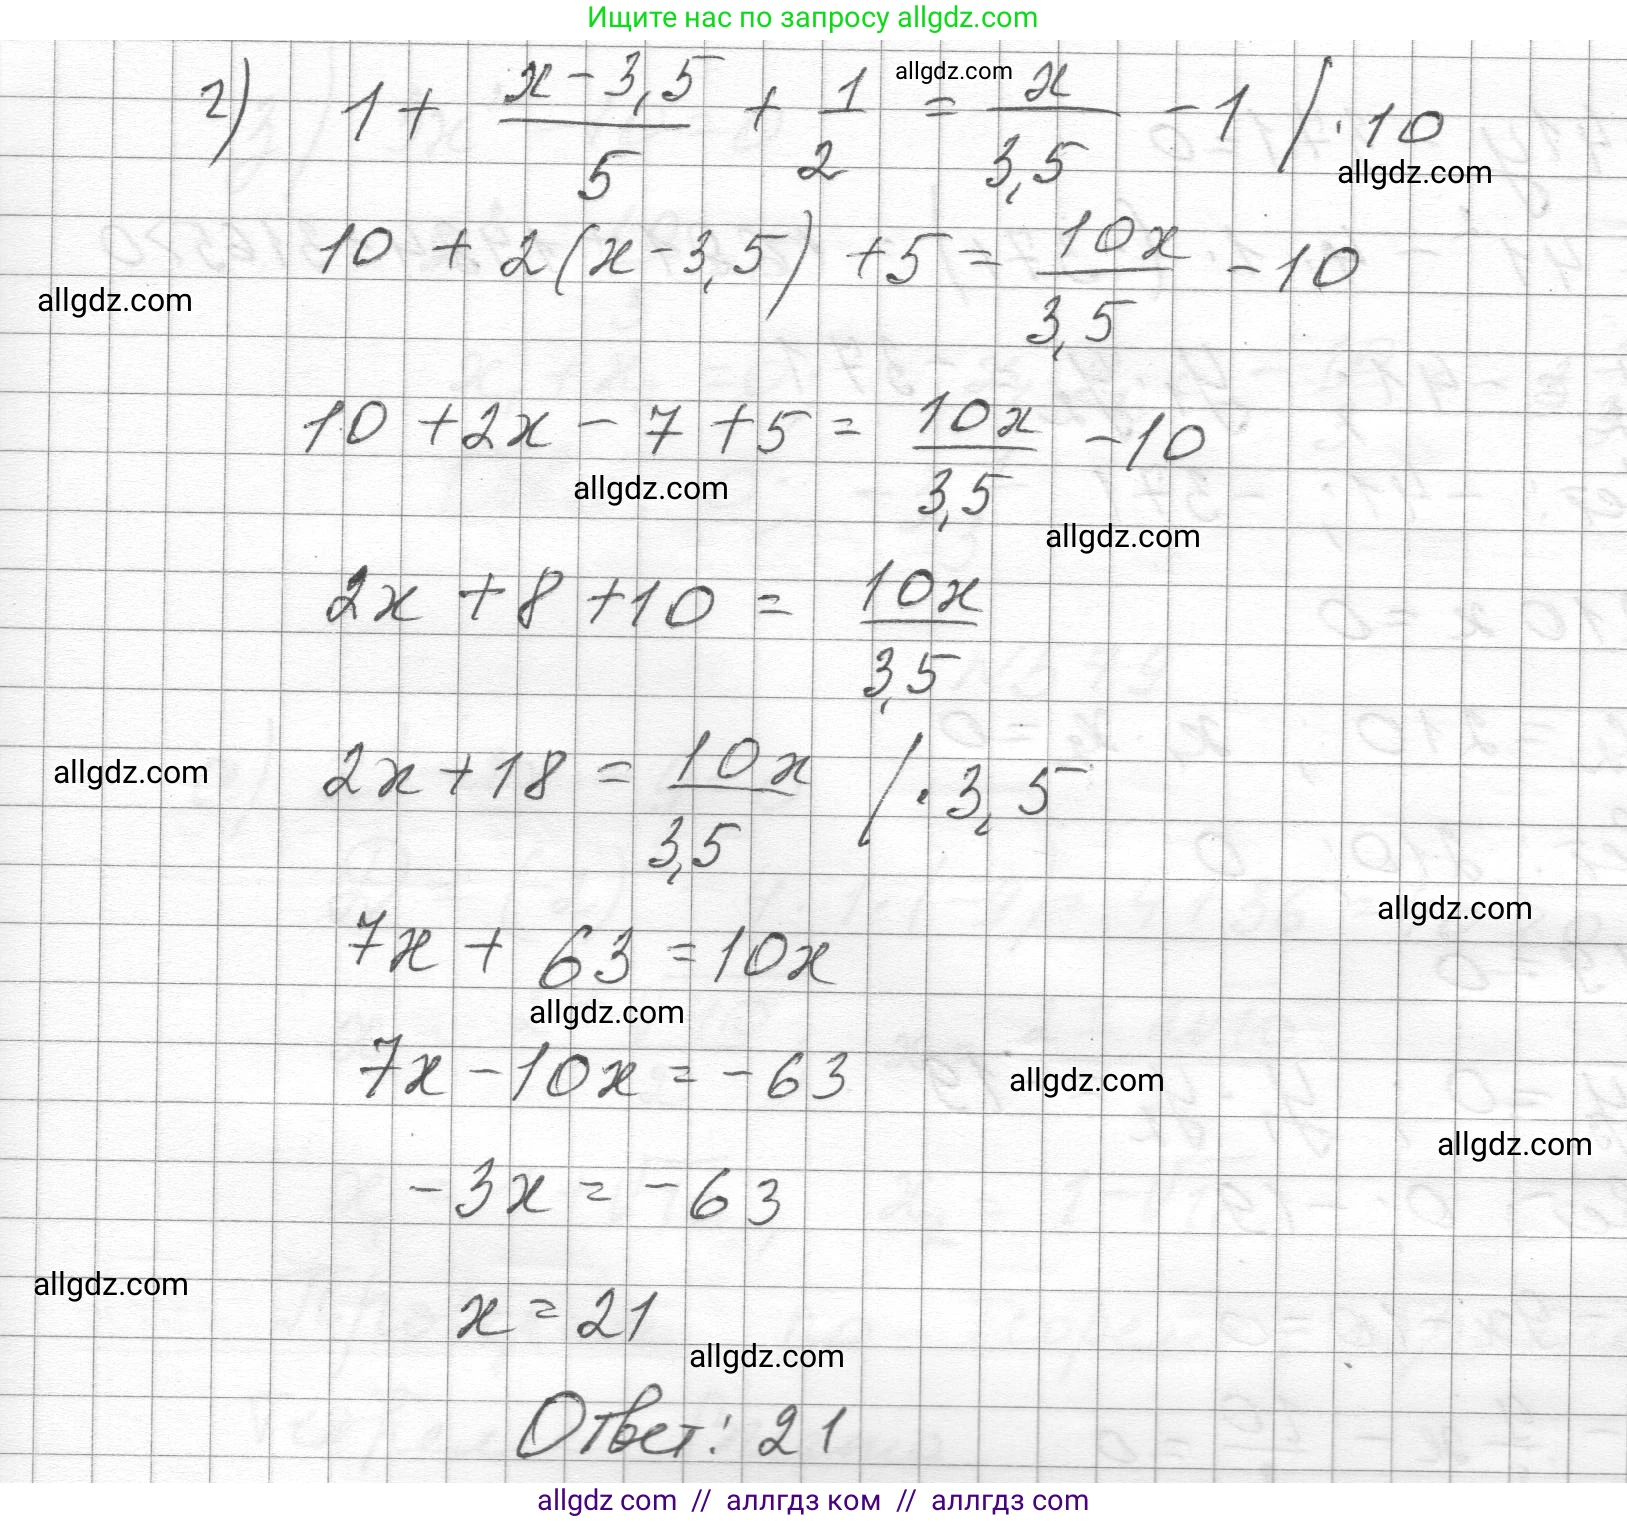 Ищите нас по запросу allgdz.com
2) 1 + (x - 3,5)/5 + 1/2 = x/3,5 - 1 / · 10
allgdz.com
allgdz.com
10 + 2(x - 3,5) + 5 = 10x/3,5 - 10
allgdz.com
10 + 2x - 7 + 5 = 10x/3,5 - 10
allgdz.com
allgdz.com
2x + 8 + 10 = 10x/3,5
2x + 18 = 10x/3,5 / · 3,5
allgdz.com
allgdz.com
7x + 63 = 10x
allgdz.com
7x - 10x = - 63
allgdz.com
allgdz.com
- 3x = - 63
allgdz.com
x = 21
allgdz.com
Ответ: 21
allgdz com // аллгдз ком // аллгдз com